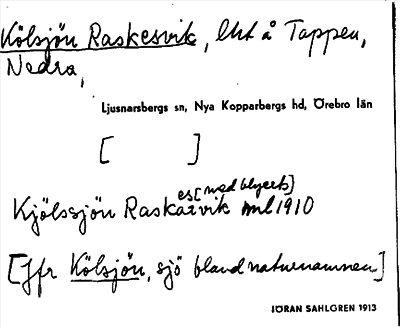 Kölsjön Raskesvik, lht å Tappen,
Nedra,
Ljusnarsbergs sn, Nya Kopparbergs hd, Örebro län
[ ]
es[med blyerts]
Kjölssjön Raskarvik ml 1910
[Jfr Kölsjön, sjö bland naturnamnen]
JÖRAN SAHLGREN 1913